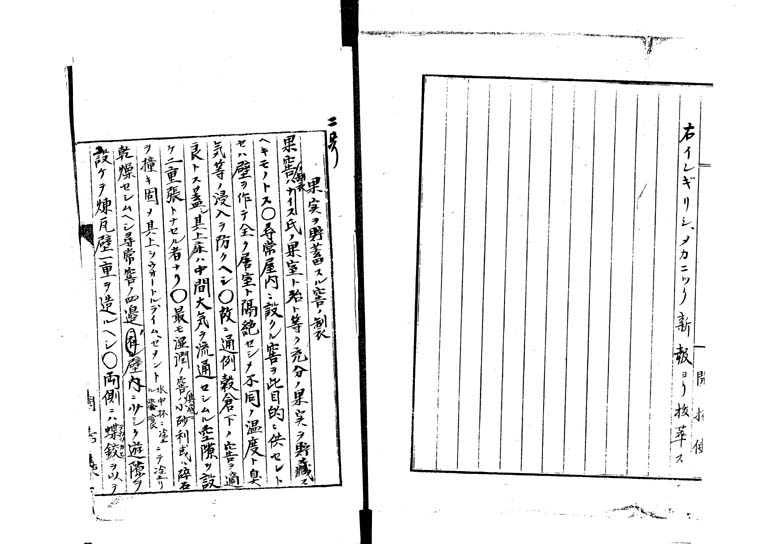 右イレギリシ、メカニツク新報ヨリ抜萃ス
開拓使
二号
果実ヲ貯蓄スル窖ノ製
果窖ハナイス氏ノ果室ト殆ト等ク充分ノ果実ヲ貯蔵ス
ヘキモノトス〇尋常屋内ニ設クル窖ヲ此目的ニ供セント
セハ壁ヲ作テ全ク居室ト隔絶セシメ不同ノ温度ト臭
気等ノ浸入ヲ防クヘシ〇故ニ通例穀倉下ノ窖ヲ適
良トス蓋其上床ハ中間大気ヲ流通セシムル空隙ヲ設
ケ二重張トナセル者ナリ〇最モ湿潤ノ窖ハ小砂利或ハ砕石
ヲ撞キ固メ其上ヲウオートルライムセメントニテ塗リ
乾燥セシムヘシ尋常窖ノ四邊壁内ニ少シク遊隙ヲ
設ケテ煉瓦壁一重ヲ造ルヘシ〇両側ニハ蝶鉸ヲ以テ